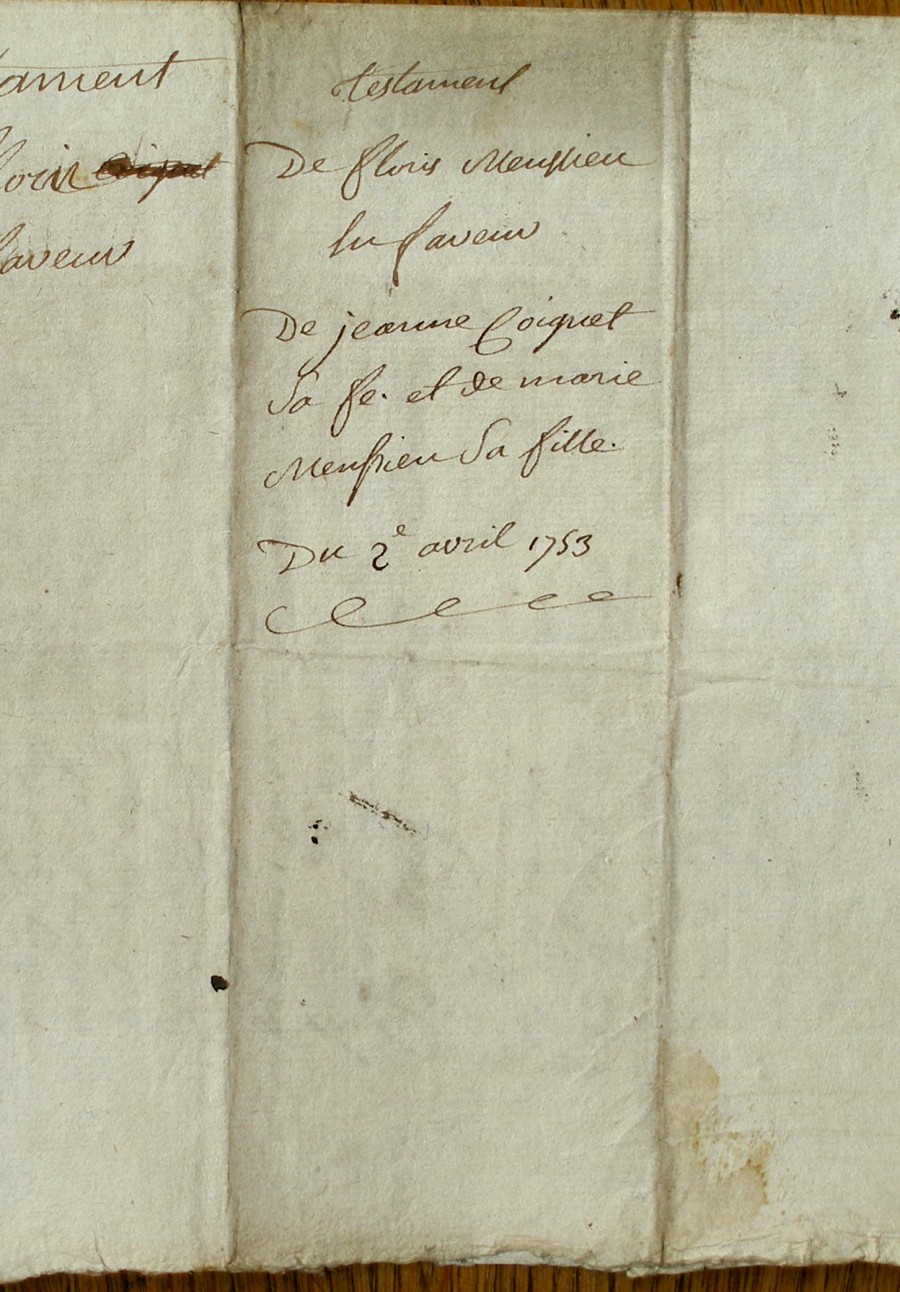 tament
saveur
testament
De floris Meussieu
En faveur
De jeanne Coignet
Sa fe. et de marie
Meussieu Sa fille.
Du 2e avril 1753